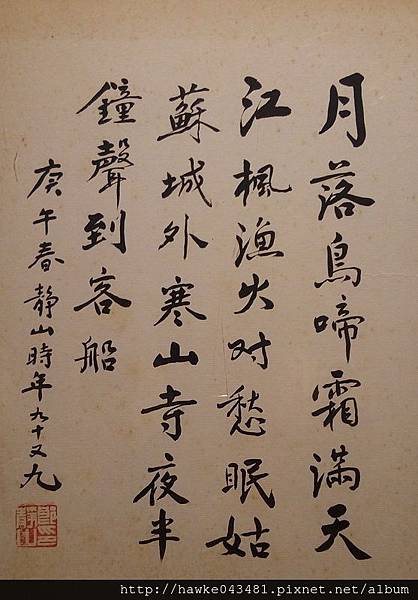 月落烏啼霜滿天
江楓漁火对愁眠姑
蘇城外寒山寺夜半
鐘聲到客船
庚午春靜山時年九十又九
http://hawke043481.pixnet.net/album